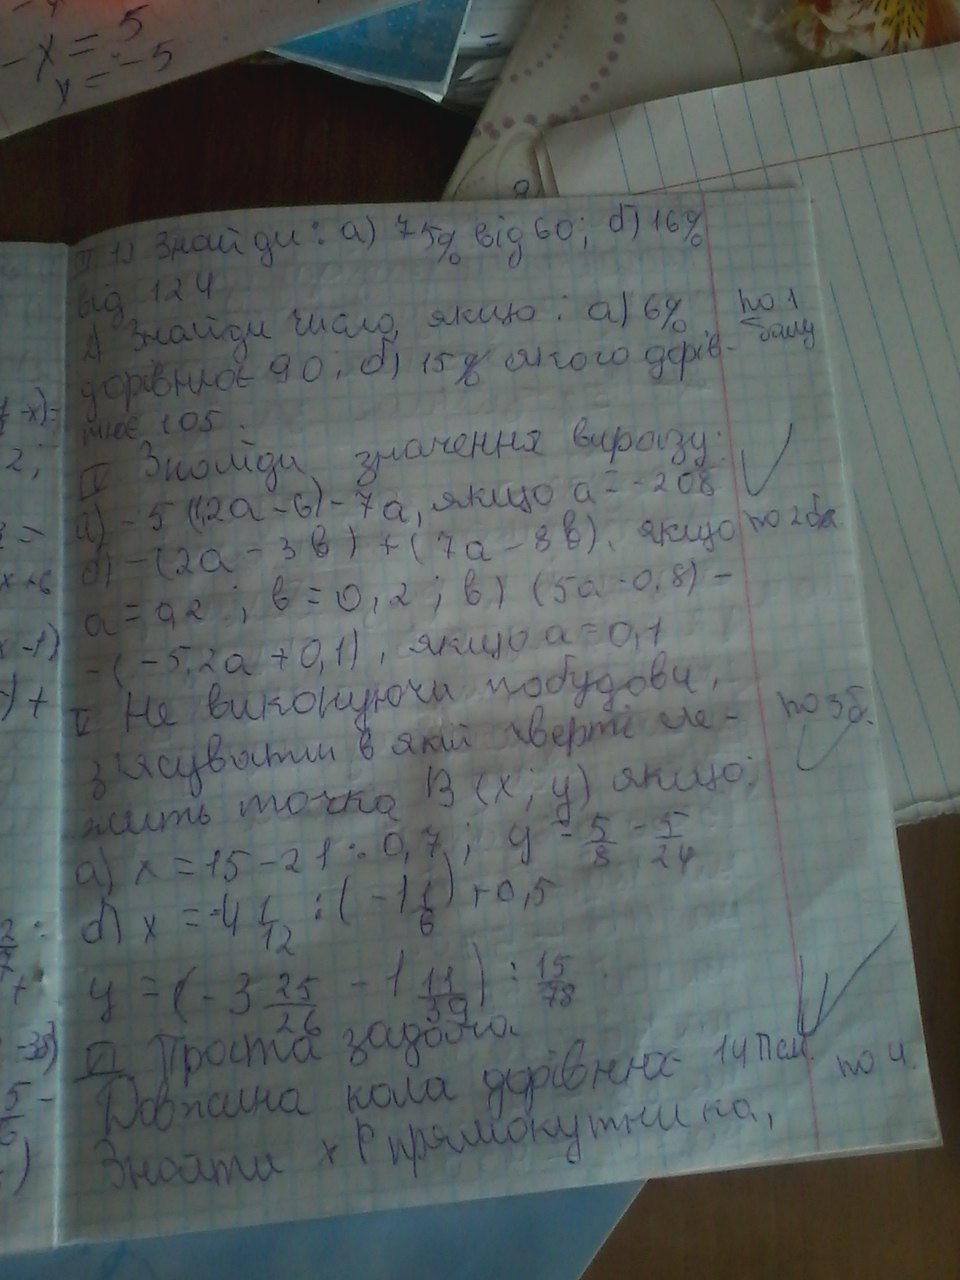 -x = 5
y = -5
III 1) Знайди: а) 75% від 60; б) 16%
від 124
2) Знайди число, якщо: а) 6% по 1
дорівнює 90; б) 15% якого дорів- балу
нює 105.
IV Знайди значення виразу:
а) -5(2a-6)-7a, якщо a=-208
б) -(2a-3b)+(7a-8b), якщо по 2 б.
a=0,2; b=0,2; в) (5a-0,8)-
-(-5,2a+0,1), якщо a=0,1
V Не виконуючи побудови,
з'ясувати в якій чверті ле- по 3 б.
жить точка B(x; y) якщо:
а) x=15-21:0,7; y=5/8-5/24
б) x=-4 1/12:(-1 1/6)+0,5
y=(-3 25/26-1 11/39):15/78
VI Проста задача
Довжина кола дорівнює 14П см. по 4.
Знайти P прямокутника,